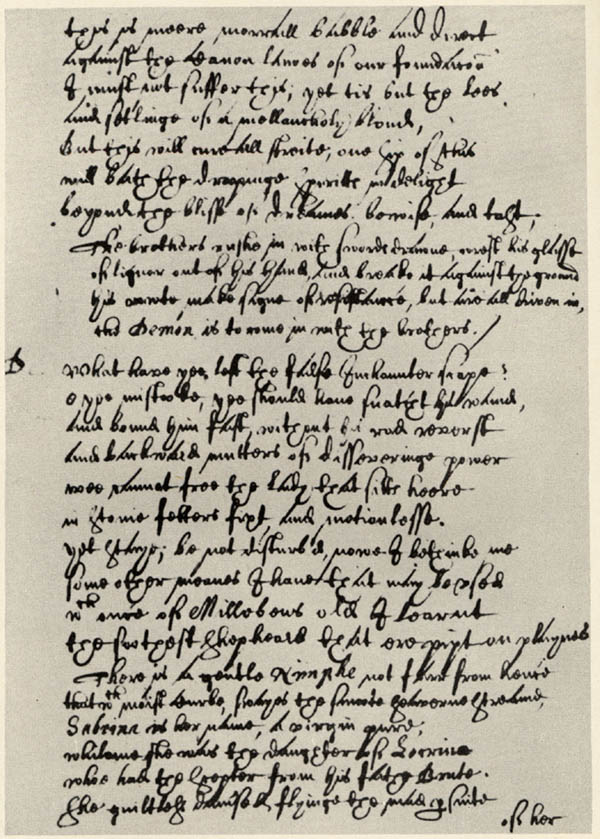 this is meere morrall babble and direct
against the Canon lawes of our foundacõn
I must not suffer this; yet tis but the lees
and setlinge of a mellancholy bloud,
but this will cure all streite, one sip of this
will bathe the droopinge spiritts in delight
beyond the blisse of dreames. be wise, and tast;
The brothers rushe in with swords drawne wrest his glasse
of liquor out of his hand, and breake it against the ground
his rowte make signe of resistance, but are all driven in,
the Demon is to come in with the brothers. /
D
What have yee, left the false Inchaunter scape?
o yee mistooke, yee should have snatcht his wand,
and bound him fast, without his rod reverst
and backward mutters of disseveringe power
wee cannot free the lady that sitts heere
in stonie fetters fixt, and motionlesse.
yet staye; be not disturb'd, nowe I bethinke me
some other meanes I have that may be vsed
wch once of Millebeus old I learnt
the soothest shepheard that ere pipt on playnes
There is a gentle Nimphe not farr from hence
that wth moist curbe, swayes the smoote severne streame,
Sabrina is her name, a virgin pure,
whilome she was the daughter of Locrine
whoe had the scepter from his father Brute.
She guiltless damsell, flyinge the mad psuite
of her